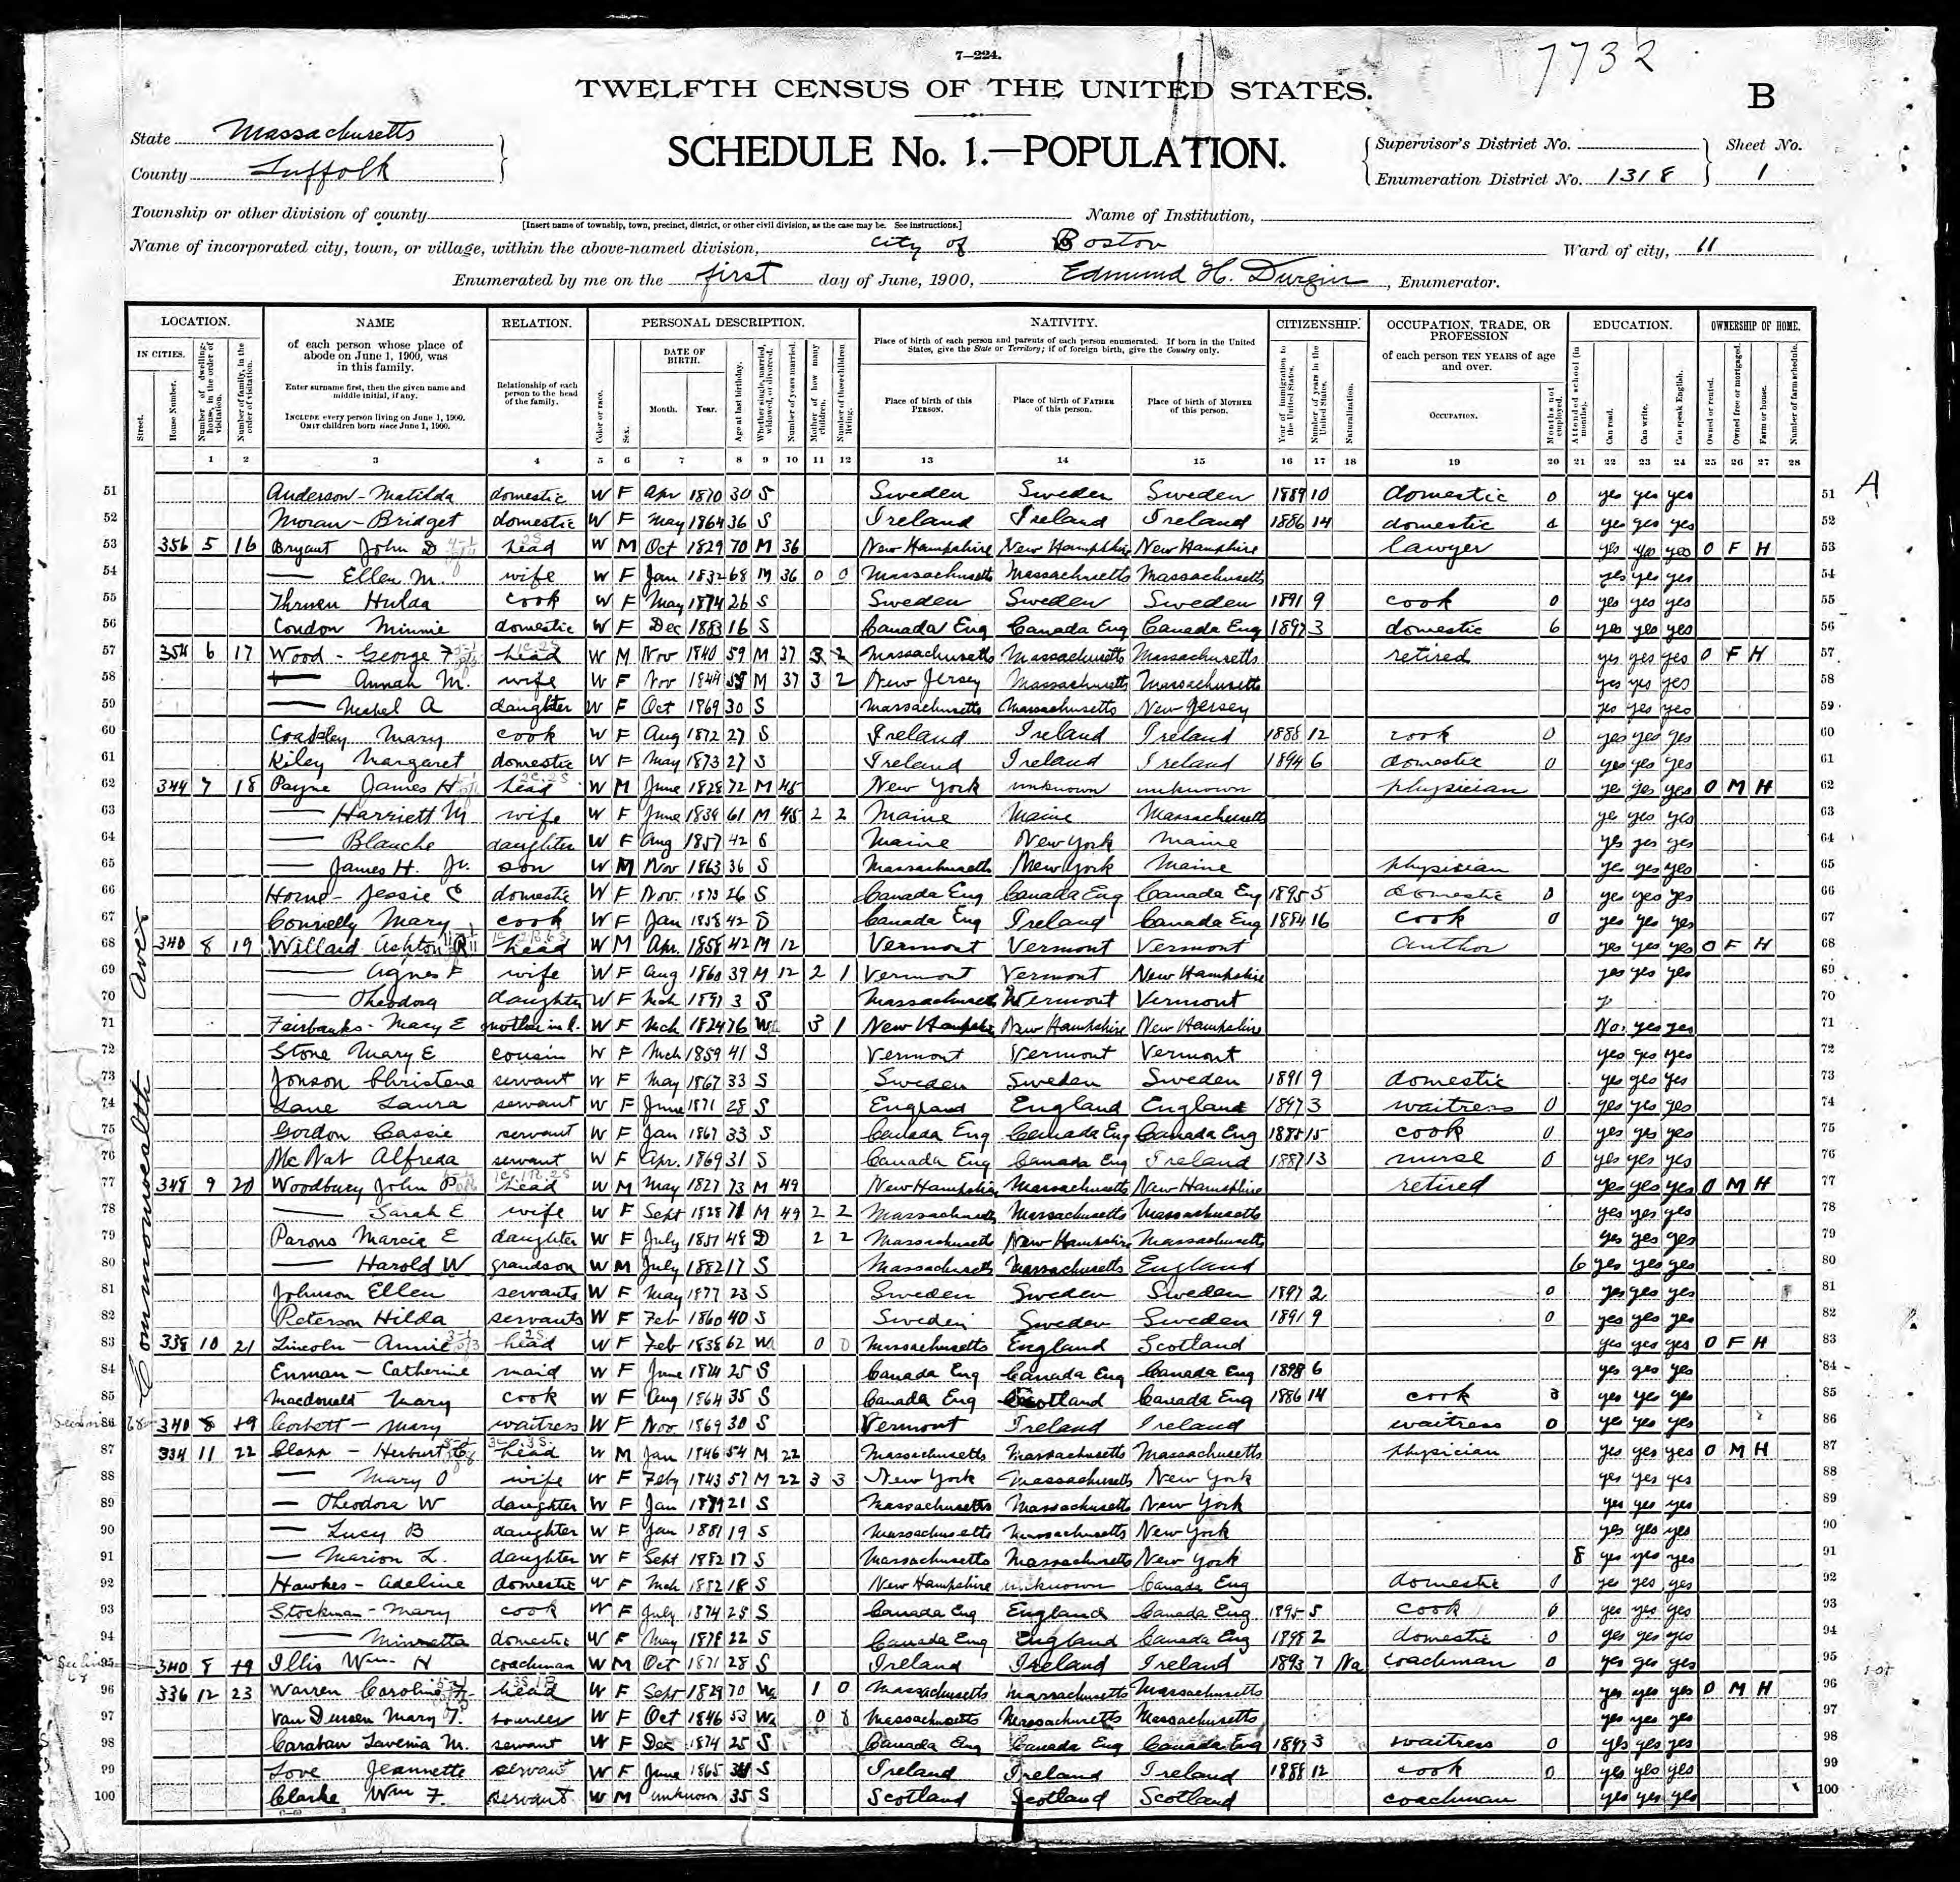 7—224.
7732
TWELFTH CENSUS OF THE UNITED STATES.
B
State Massachusetts
County Suffolk
SCHEDULE No. 1.—POPULATION.
Supervisor's District No. Sheet No.
Enumeration District No. 1318 1
Township or other division of county Name of Institution,
[Insert name of township, town, precinct, district, or other civil division, as the case may be. See instructions.]
Name of incorporated city, town, or village, within the above-named division, City of Boston Ward of city, 11
Enumerated by me on the first day of June, 1900, Edmund H. Durgin, Enumerator.
LOCATION. NAME RELATION. PERSONAL DESCRIPTION. NATIVITY. CITIZENSHIP. OCCUPATION, TRADE, OR PROFESSION EDUCATION. OWNERSHIP OF HOME.
IN CITIES. Street. House Number. Number of dwelling-house, in the order of visitation. Number of family, in the order of visitation.
of each person whose place of abode on June 1, 1900, was in this family.
Enter surname first, then the given name and middle initial, if any.
INCLUDE every person living on June 1, 1900. OMIT children born since June 1, 1900.
Relationship of each person to the head of the family.
Color or race. Sex. DATE OF BIRTH. Month. Year. Age at last birthday. Whether single, married, widowed, or divorced. Number of years married. Mother of how many children. Number of these children living.
Place of birth of each person and parents of each person enumerated. If born in the United States, give the State or Territory; if of foreign birth, give the Country only.
Place of birth of this PERSON. Place of birth of FATHER of this person. Place of birth of MOTHER of this person.
Year of immigration to the United States. Number of years in the United States. Naturalization.
of each person TEN YEARS of age and over.
OCCUPATION. Months not employed.
Attended school (in months). Can read. Can write. Can speak English.
Owned or rented. Owned free or mortgaged. Farm or house. Number of farm schedule.
1 2 3 4 5 6 7 8 9 10 11 12 13 14 15 16 17 18 19 20 21 22 23 24 25 26 27 28
Commonwealth Ave
A
51 Anderson - Matilda domestic W F Apr 1870 30 S Sweden Sweden Sweden 1889 10 domestic 0 yes yes yes 51
52 Moran - Bridget domestic W F May 1864 36 S Ireland Ireland Ireland 1886 14 domestic yes yes yes 52
53 356 5 16 Bryant John D head W M Oct 1829 70 M 36 New Hampshire New Hampshire New Hampshire lawyer yes yes yes O F H 53
54 — Ellen M. wife W F Jan 1832 68 M 36 0 0 Massachusetts Massachusetts Massachusetts yes yes yes 54
55 Hulda cook W F May 1874 26 S Sweden Sweden Sweden 1891 9 cook 0 yes yes yes 55
56 Condon Minnie domestic W F Dec 1883 16 S Canada Eng Canada Eng Canada Eng 1897 3 domestic 6 yes yes yes 56
57 354 6 17 Wood - George F head W M Nov 1840 59 M 37 3 2 Massachusetts Massachusetts Massachusetts retired yes yes yes O F H 57
58 — Annah M. wife W F Nov 1844 M 37 3 2 New Jersey Massachusetts Massachusetts yes yes yes 58
59 — Mabel A daughter W F Oct 1869 30 S Massachusetts Massachusetts New Jersey yes yes yes 59
60 Mary cook W F Aug 1872 27 S Ireland Ireland Ireland 1888 12 cook 0 yes yes yes 60
61 Riley Margaret domestic W F May 1873 27 S Ireland Ireland Ireland 1894 6 domestic 0 yes yes yes 61
62 344 7 18 Payne James H head W M June 1828 72 M 45 New York unknown unknown physician yes yes yes O M H 62
63 — Harriett M wife W F June 1839 61 M 45 2 2 Maine Maine Massachusetts ye yes yes 63
64 — Blanche daughter W F Aug 1857 42 S Maine New York Maine yes yes yes 64
65 — James H. Jr. son W M Nov 1863 36 S Massachusetts New York Maine physician yes yes yes 65
66 Horne - Jessie C domestic W F Nov. 1873 26 S Canada Eng Canada Eng Canada Eng 1895 5 domestic 0 yes yes yes 66
67 Connelly Mary cook W F Jan 1858 42 S Canada Eng Ireland Canada Eng 1884 16 cook 0 yes yes yes 67
68 340 8 19 Willard Ashton R head W M Apr. 1858 42 M 12 Vermont Vermont Vermont author yes yes yes O F H 68
69 — Agnes F wife W F Aug 1860 39 M 12 2 1 Vermont Vermont New Hampshire yes yes yes 69
70 — Theodora daughter W F Mch 1897 3 S Massachusetts Vermont Vermont 70
71 Fairbanks - Mary E mother in l. W F Mch 1824 76 Wd 3 1 New Hampshire New Hampshire New Hampshire No. yes yes 71
72 Stone Mary E cousin W F Mch 1859 41 S Vermont Vermont Vermont yes yes yes 72
73 Jonson Christene servant W F May 1867 33 S Sweden Sweden Sweden 1891 9 domestic yes yes yes 73
74 Lane Laura servant W F June 1871 28 S England England England 1897 3 waitress 0 yes yes yes 74
75 Gordon Cassie servant W F Jan 1867 33 S Canada Eng Canada Eng Canada Eng 1885 15 cook 0 yes yes yes 75
76 McNat Alfreda servant W F Apr. 1869 31 S Canada Eng Canada Eng Ireland 1887 13 nurse 0 yes yes yes 76
77 348 9 20 Woodbury John P head W M May 1827 73 M 49 New Hampshire Massachusetts New Hampshire retired yes yes yes O M H 77
78 — Sarah E wife W F Sept 1828 71 M 49 2 2 Massachusetts Massachusetts Massachusetts yes yes yes 78
79 Parons Marcia E daughter W F July 1851 48 D 2 2 Massachusetts New Hampshire Massachusetts yes yes yes 79
80 — Harold W grandson W M July 1882 17 S Massachusetts Massachusetts England 6 yes yes yes 80
81 Johnson Ellen servants W F May 1877 23 S Sweden Sweden Sweden 1897 2 0 yes yes yes 81
82 Peterson Hilda servants W F Feb 1860 40 S Sweden Sweden Sweden 1891 9 0 yes yes yes 82
83 338 10 21 Lincoln - Annie head W F Feb 1838 62 Wd 0 0 Massachusetts England Scotland yes yes yes O F H 83
84 Enman - Catherine maid W F June 1874 25 S Canada Eng Canada Eng Canada Eng 6 yes yes yes 84
85 Macdonald Mary cook W F Aug 1864 35 S Canada Eng Scotland Canada Eng 1886 14 cook yes yes yes 85
86 340 8 19 Corbett - Mary waitress W F Nov. 1869 30 S Vermont Ireland Ireland waitress 0 yes yes yes 86
87 334 11 22 Clapp - Herbert C head W M Jan 1846 54 M 22 Massachusetts Massachusetts Massachusetts physician yes yes yes O M H 87
88 — Mary O wife W F Feby 1843 57 M 22 3 3 New York Massachusetts New York yes yes yes 88
89 — Theodora W daughter W F Jan 1879 21 S Massachusetts Massachusetts New York yes yes yes 89
90 — Lucy B daughter W F Jan 1881 19 S Massachusetts Massachusetts New York yes yes yes 90
91 — Marion L. daughter W F Sept 1882 17 S Massachusetts Massachusetts New York 8 yes yes yes 91
92 Hawkes - Adeline domestic W F Mch 1882 18 S New Hampshire unknown Canada Eng domestic 0 yes yes yes 92
93 Stockman - Mary cook W F July 1874 25 S Canada Eng England Canada Eng 1895 5 cook 0 yes yes yes 93
94 — Minnetta domestic W F May 1878 22 S Canada Eng England Canada Eng 1898 2 domestic 0 yes yes yes 94
95 340 8 19 Illis Wm. H coachman W M Oct 1871 28 S Ireland Ireland Ireland 1893 7 Na coachman 0 yes yes yes 95
96 336 12 23 Warren Caroline head W F Sept 1829 70 Wd 1 0 Massachusetts Massachusetts Massachusetts yes yes yes O M H 96
97 Van Deusen Mary T. W F Oct 1846 53 Wd 0 Massachusetts Massachusetts Massachusetts yes yes yes 97
98 Caraban Lavenia M. servant W F Dec 1874 25 S Canada Eng Canada Eng Canada Eng 1897 3 waitress 0 yes yes yes 98
99 Love Jeannette servant W F June 1865 S Ireland Ireland Ireland 1888 12 cook 0 yes yes yes 99
100 Clarke Wm F. servant W M unknown 35 S Scotland Scotland Scotland coachman yes yes yes 100